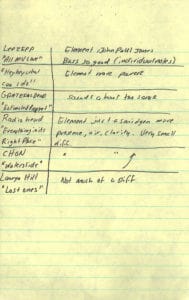 Led Zepp Element (John Paul Jones
"All My Love" Bass so good (individual notes)
"Hey Hey what Element more powere
can I do"
Grateful Dead Sounds about the same
"Estimated Prophet"
Radio head Element just a smidgen more
"Everything in its presence, air, clarity. Very small
Right Place" diff.
CHON " "
"Waterslide"
Lauryn Hill Not much of a diff
"Lost ones"